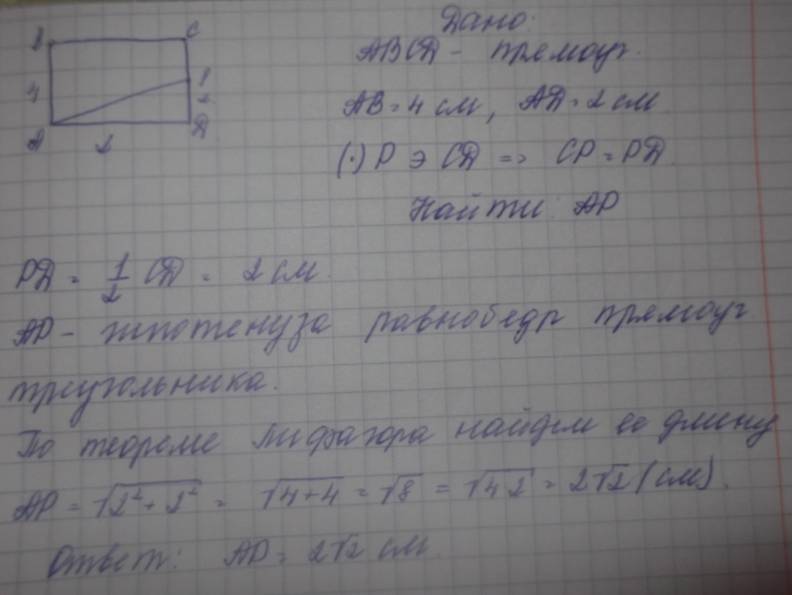 Дано:
ABCD - прямоуг.
AB = 4 см, AD = 2 см
(·) P ∋ CD => CP = PD.
Найти: AP
B C
4
A 2 D
PD = 1/2 CD = 2 см.
AP - гипотенуза равнобедр прямоуг
треугольника.
По теореме Пифагора найдем ее длину
AP = √2² + 2² = √4+4 = √8 = √4·2 = 2√2 (см).
Ответ: AP = 2√2 см.